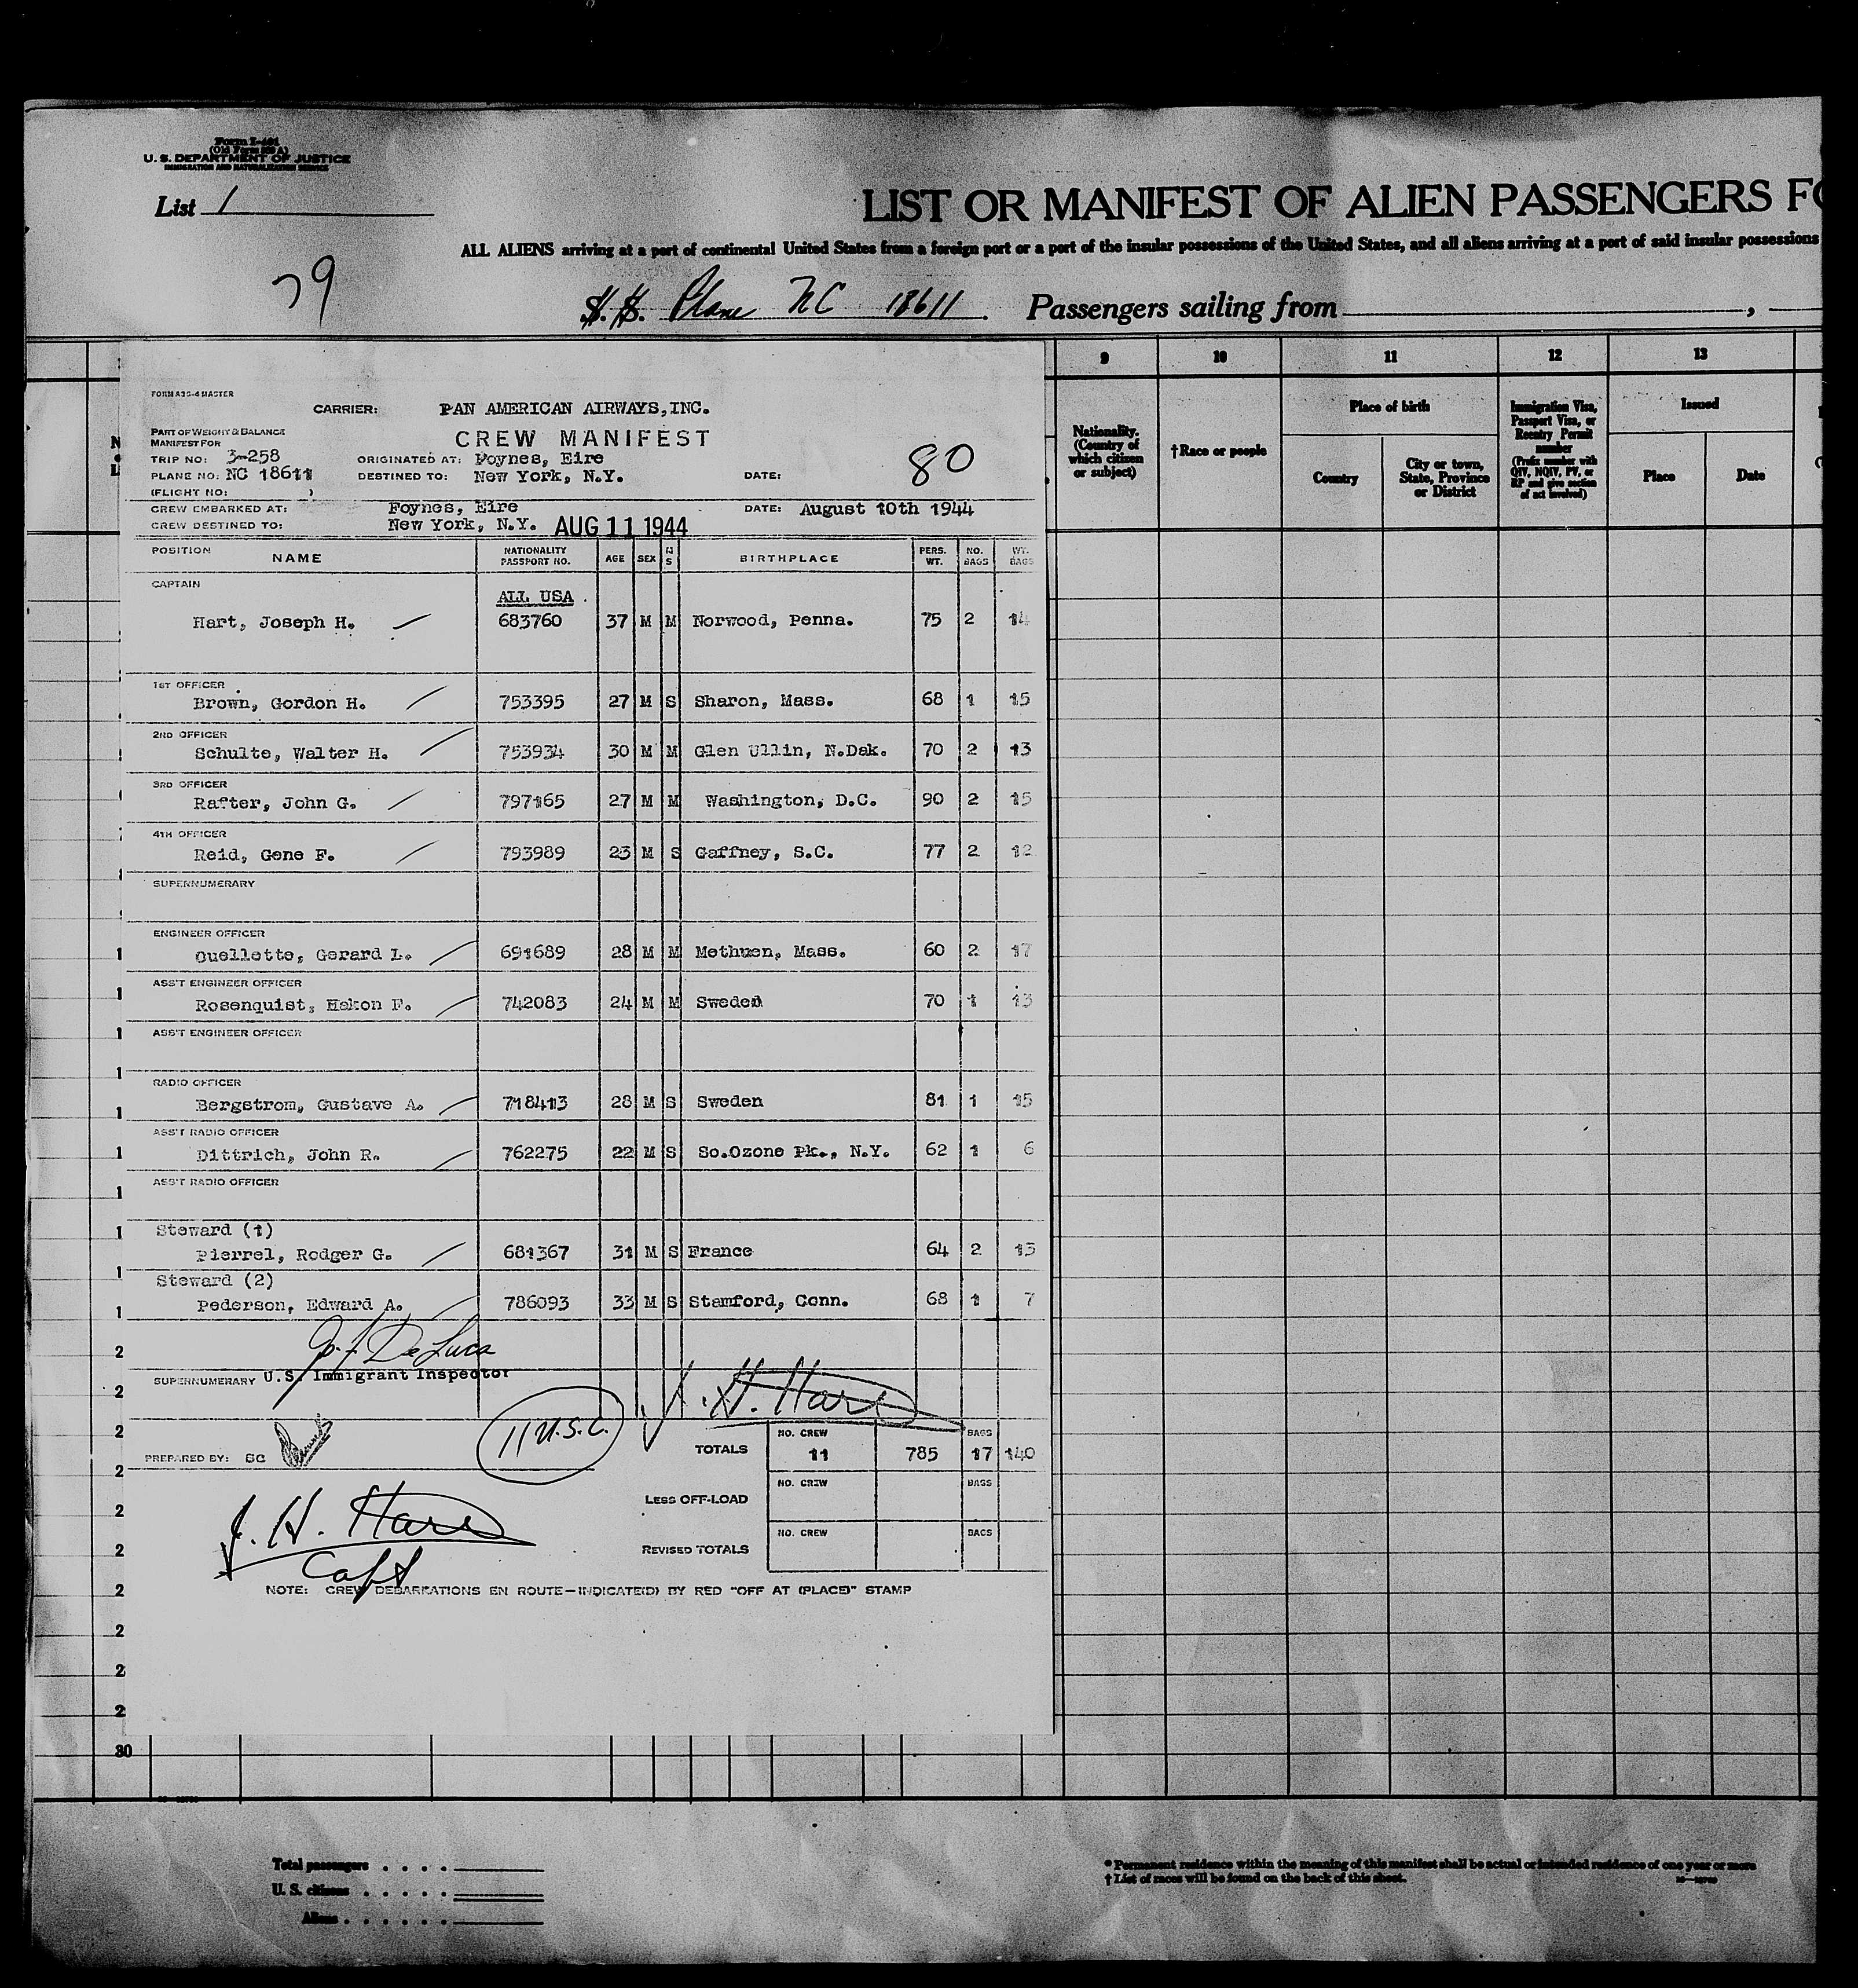 Form I-431
(Old Form 500 A)
U. S. DEPARTMENT OF JUSTICE
IMMIGRATION AND NATURALIZATION SERVICE
List 1
LIST OR MANIFEST OF ALIEN PASSENGERS FO
ALL ALIENS arriving at a port of continental United States from a foreign port or a port of the insular possessions of the United States, and all aliens arriving at a port of said insular possessions
79
S. S. Plane NC 18611. Passengers sailing from ,
9 10 11 12 13
Nationality. (Country of which citizen or subject)
†Race or people
Place of birth
Country
City or town, State, Province or District
Immigration Visa, Passport Visa, or Reentry Permit number
(Prefix number with QIV, NQIV, PV, or RP and give section of act involved)
Issued
Place
Date
FORM A35-4 MASTER
CARRIER: PAN AMERICAN AIRWAYS,INC.
PART OF WEIGHT & BALANCE
MANIFEST FOR
CREW MANIFEST
80
TRIP NO: 3-258 ORIGINATED AT: Foynes, Eire
PLANE NO: NC 18611 DESTINED TO: New York, N.Y. DATE:
(FLIGHT NO: )
CREW EMBARKED AT: Foynes, Eire DATE: August 10th 1944
CREW DESTINED TO: New York, N.Y. AUG 11 1944
POSITION NAME NATIONALITY PASSPORT NO. AGE SEX M S BIRTHPLACE PERS. WT. NO. BAGS WT. BAGS
CAPTAIN
ALL USA
Hart, Joseph H. 683760 37 M M Norwood, Penna. 75 2 14
1ST OFFICER
Brown, Gordon H. 753395 27 M S Sharon, Mass. 68 1 15
2ND OFFICER
Schulte, Walter H. 753934 30 M M Glen Ullin, N.Dak. 70 2 13
3RD OFFICER
Rafter, John G. 797165 27 M M Washington, D.C. 90 2 15
4TH OFFICER
Reid, Gene F. 793989 23 M S Gaffney, S.C. 77 2 12
SUPERNUMERARY
ENGINEER OFFICER
Ouellette, Gerard L. 691689 28 M M Methuen, Mass. 60 2 17
ASS'T ENGINEER OFFICER
Rosenquist, Hakon F. 742083 24 M M Sweden 70 1 13
ASS'T ENGINEER OFFICER
RADIO OFFICER
Bergstrom, Gustave A. 718413 28 M S Sweden 81 1 15
ASS'T RADIO OFFICER
Dittrich, John R. 762275 22 M S So.Ozone Pk., N.Y. 62 1 6
ASS'T RADIO OFFICER
Steward (1)
Pierrel, Rodger G. 681367 31 M S France 64 2 13
Steward (2)
Pederson, Edward A. 786093 33 M S Stamford, Conn. 68 1 7
J. F. DeLuca
SUPERNUMERARY U.S. Immigrant Inspector
J. H. Hart
11 U.S.C.
PREPARED BY: SC
TOTALS NO. CREW 11 785 BAGS 17 140
LESS OFF-LOAD NO. CREW BAGS
REVISED TOTALS NO. CREW BAGS
J. H. Hart
Capt
NOTE: CREW DEBARKATIONS EN ROUTE—INDICATE(D) BY RED "OFF AT (PLACE)" STAMP
30
Total passengers
U. S. citizens
Aliens
* Permanent residence within the meaning of this manifest shall be actual or intended residence of one year or more
† List of races will be found on the back of this sheet.